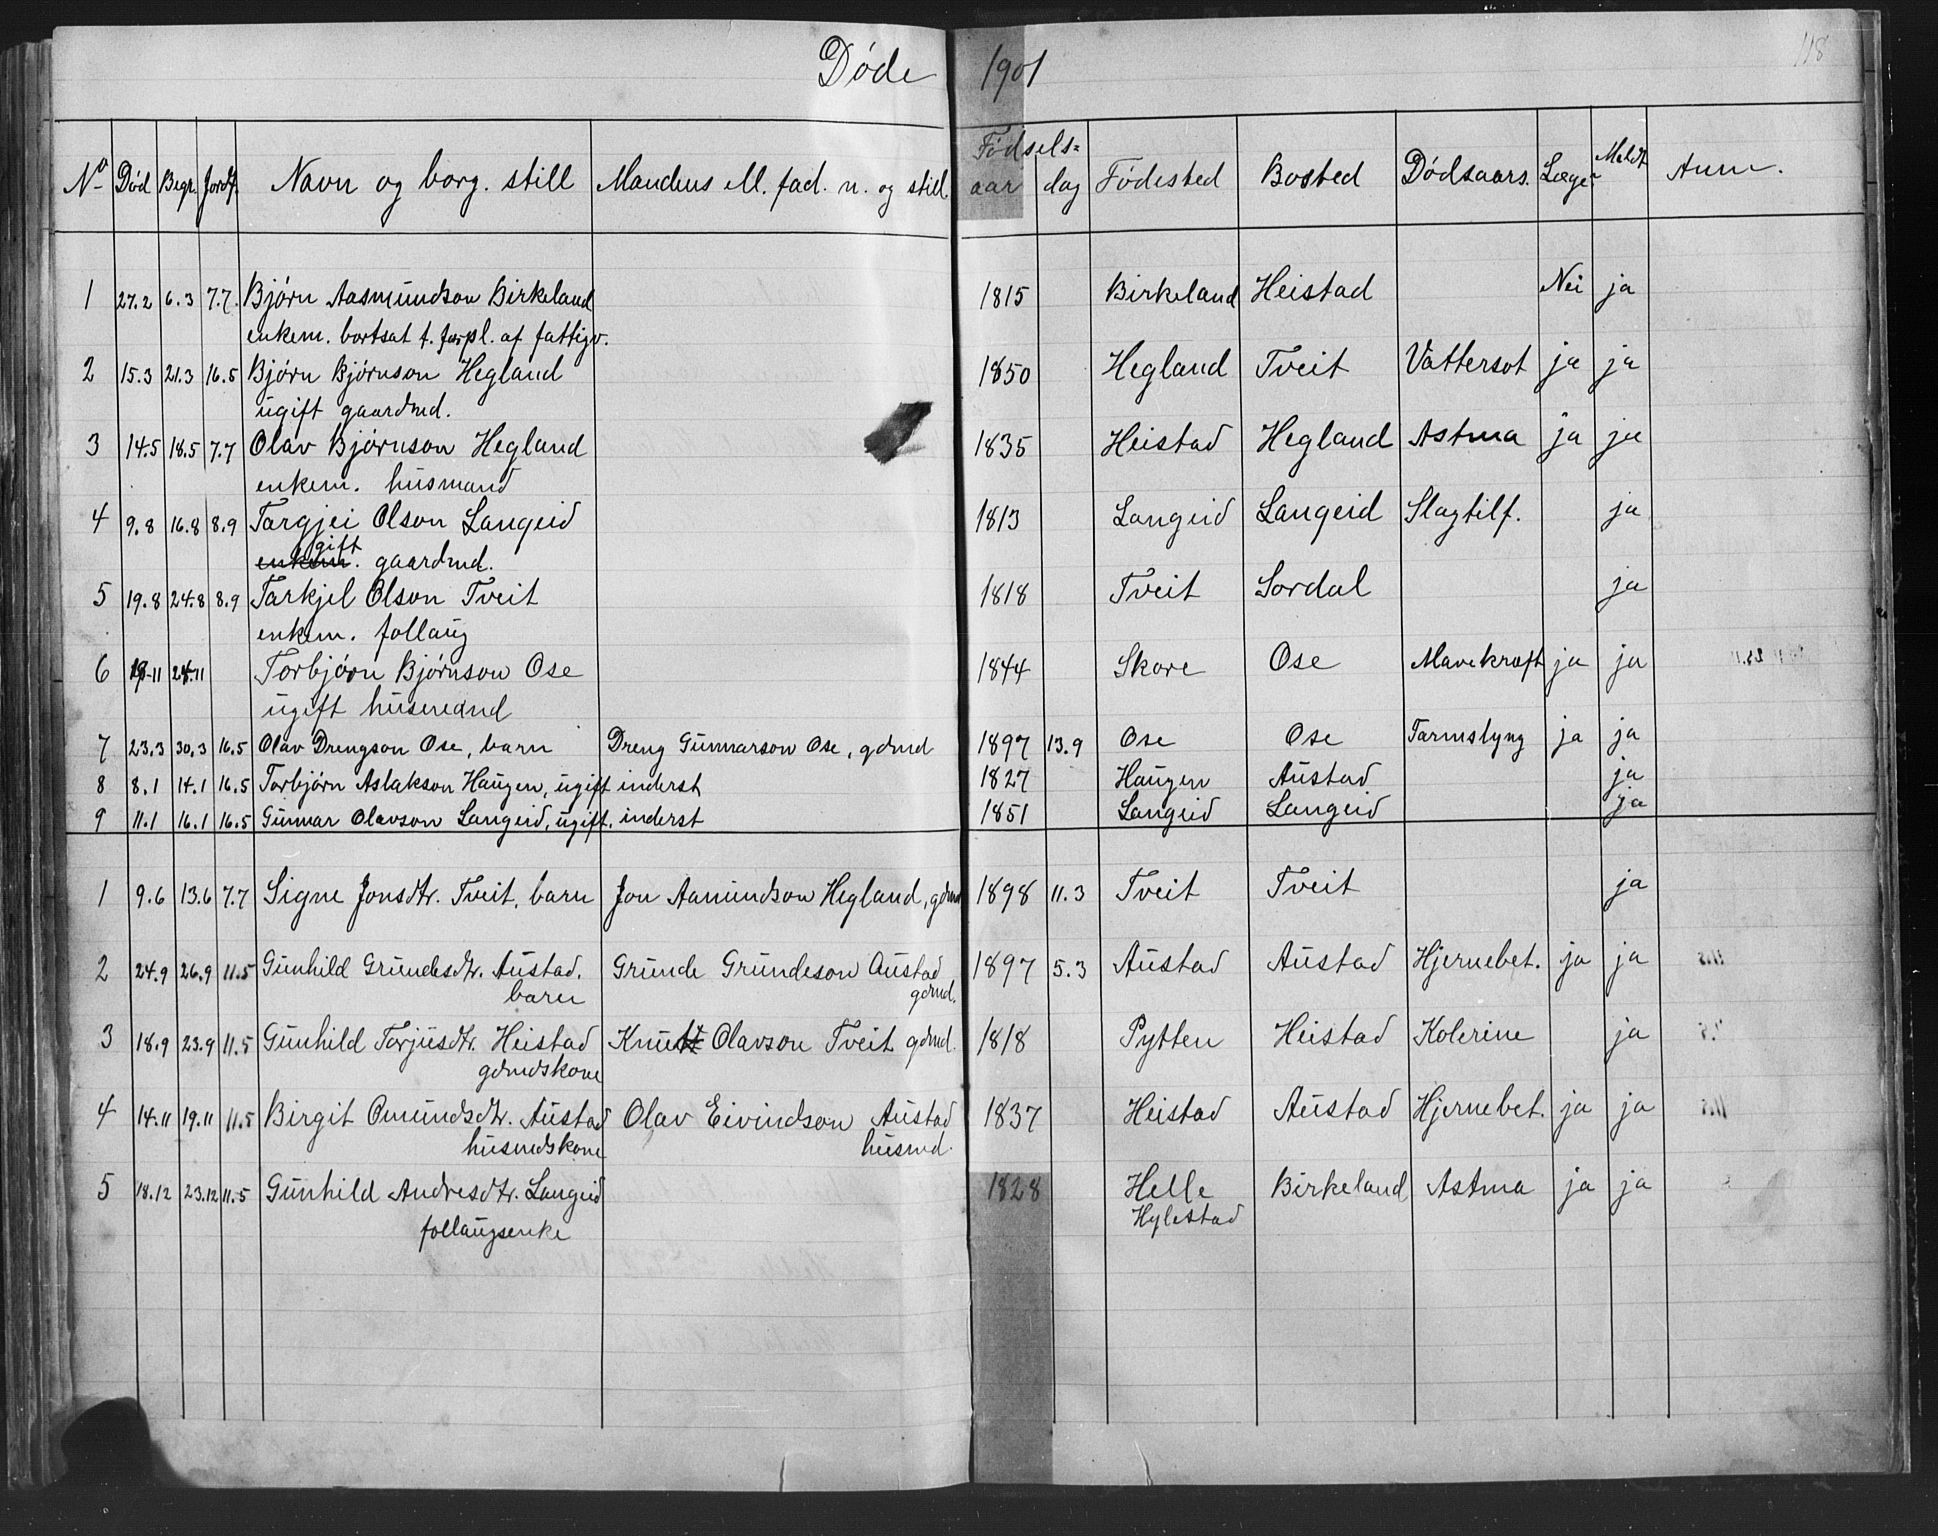 Døde 1901
118
No Død Begr. Jordf. Navn og borg. still Mandens ell. fad. n. og still Fødsels= aar dag Fødested Bosted Dødsaars. Læge Meldt Anm.
1 27.2 6.3 7.7. Bjørn Aasmundson Birkeland 1815 Birkeland Heistad Nei ja
enkem. bortsat t. forpl. af fattigv.
2 15.3 21.3 16.5 Bjørn Bjørnson Hegland 1850 Hegland Tveit Vattersot ja ja
ugift gaardmd.
3 14.5 18.5 7.7 Olav Bjørnson Hegland 1835 Heistad Hegland Astma ja ja
enkem. husmand
4 9.8 16.8 8.9 Targjei Olson Langeid 1813 Langeid Langeid Slagtilf. ja
gift
enkem. gaardmd.
5 19.8 24.8 8.9 Tarkjel Olson Tveit 1818 Tveit Sordal ja
enkem. follaug
6 24.11 Torbjørn Bjørnson Ose 1844 Skore Ose Mavekræft ja ja
ugift
7 23.3 30.3 16.5 Olav Drengson Ose, barn Dreng Gunnarson Ose, gdmd 1897 13.9 Ose Ose Tarmslyng ja ja
8 8.1 14.1 16.5 Torbjørn Aslakson Haugen, ugift inderst 1827 Haugen Austad ja
9 11.1 16.1 16.5 Gunnar Olavson Langeid, ugift. inderst 1851 Langeid Langeid ja
1 9.6 13.6 7.7 Signe Jonsdtr. Tveit, barn Jon Aamundson Hegland, gdmd 1898 11.3 Tveit Tveit ja
2 24.9 26.9 11.5 Gunhild Grundesdtr. Austad. Grunde Grundeson Austad 1897 5.3 Austad Austad Hjernebet. ja ja
barn gdmd.
3 18.9 23.9 11.5 Gunhild Torjusdtr. Heistad Knut Olavson Tveit gdmd. 1818 Pytten Heistad Kolerine ja
gdmdskone
4 14.11 19.11 11.5 Birgit Omundsdtr. Austad Olav Eivindson Austad 1837 Heistad Austad Hjernebet. ja ja
husmdskone husmd.
5 18.12 23.12 11.5 Gunhild Andresdtr. Langeid 1828 Helle Birkeland Astma ja ja
follaugsenke Hylestad